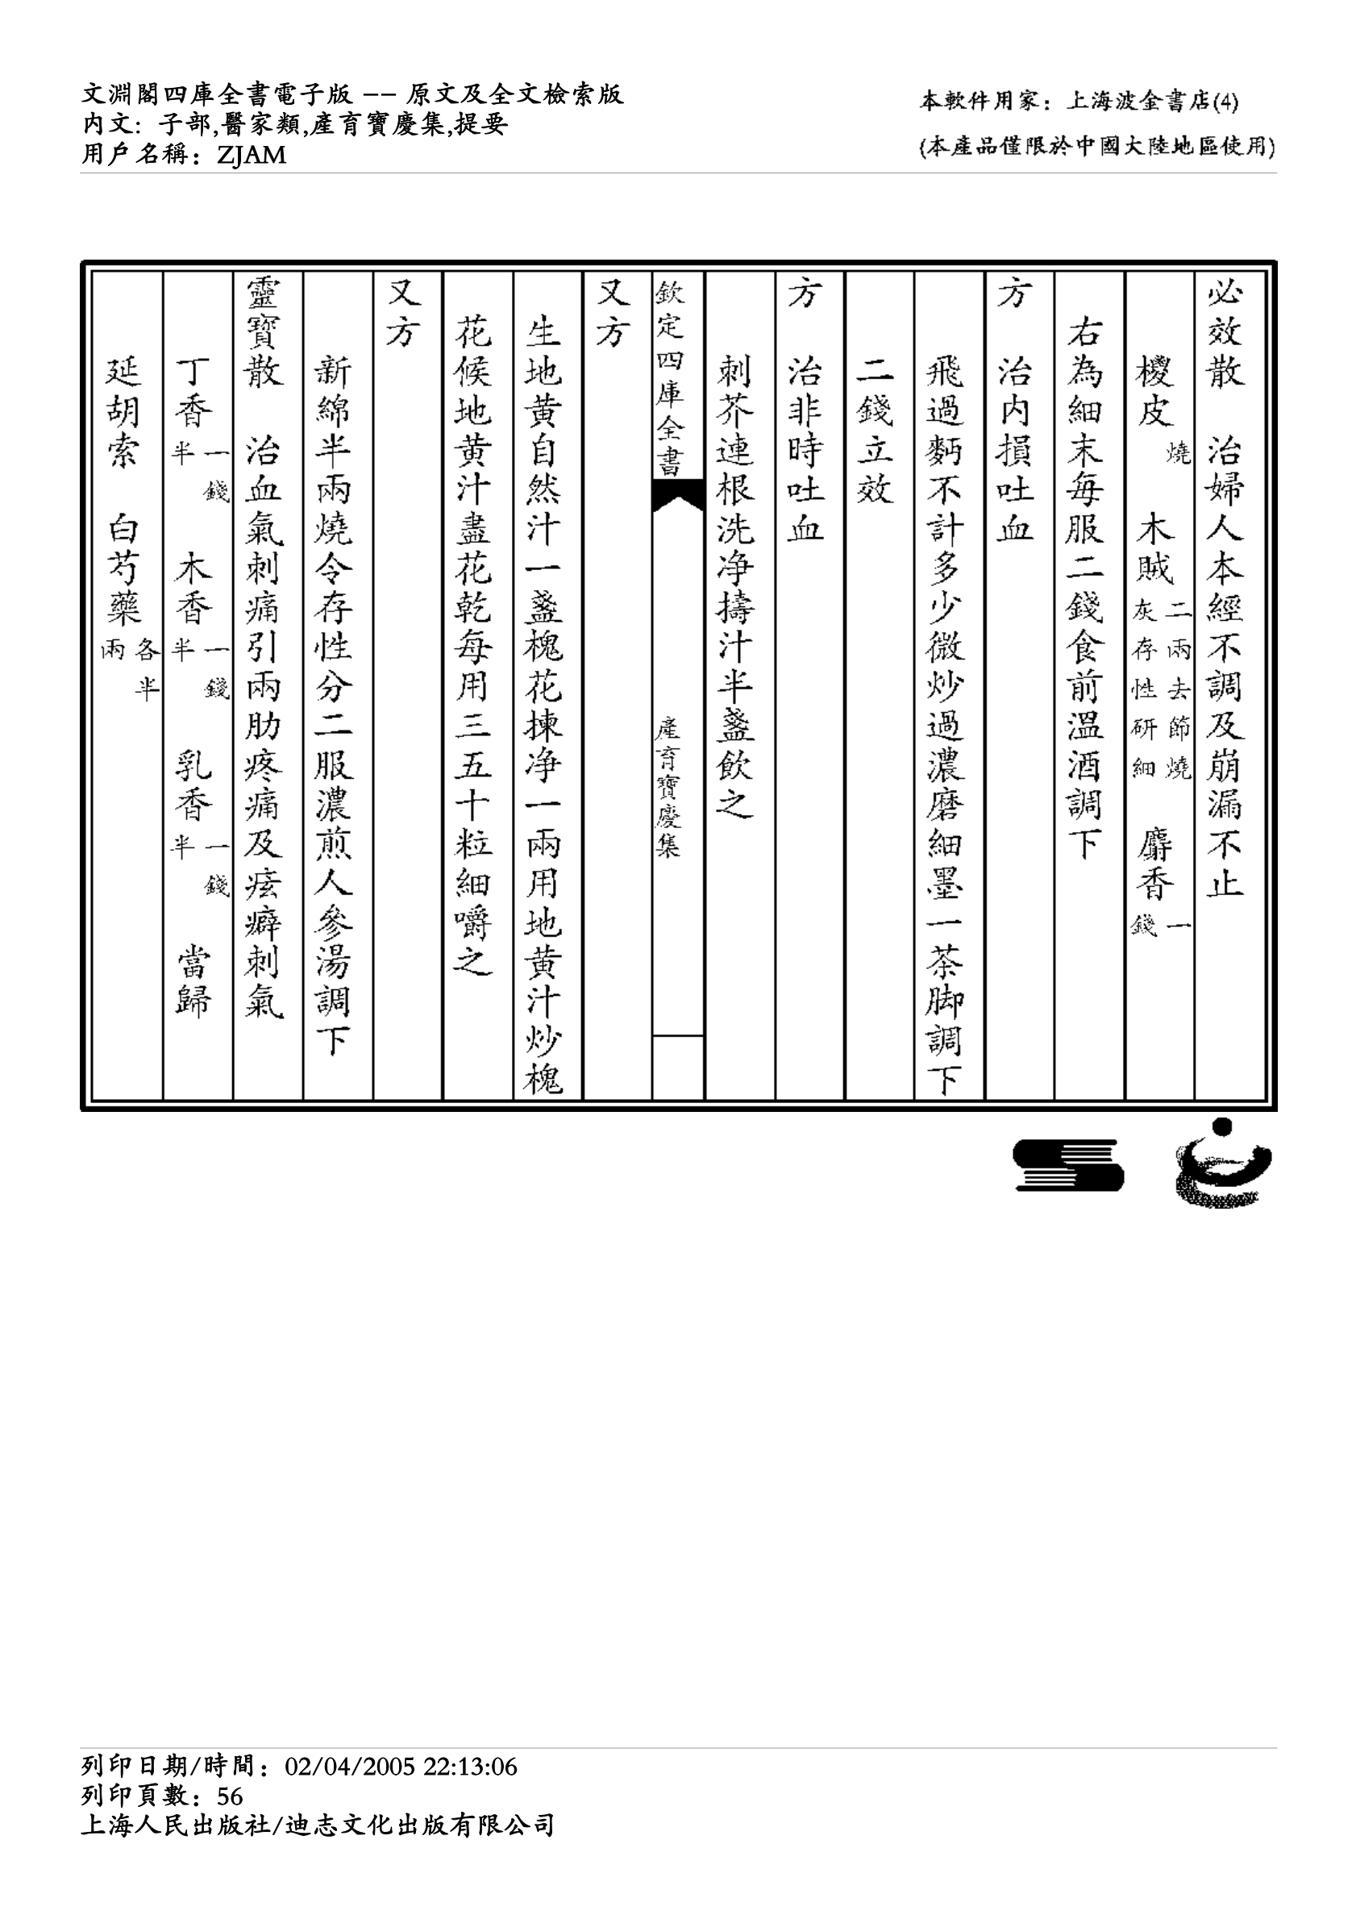 文淵閣四庫全書電子版 —— 原文及全文檢索版
内文：子部,醫家類,產育寶慶集,提要
用戶名稱：ZJAM
本軟件用家：上海波金書店(4)
(本產品僅限於中國大陸地區使用)
必效散　治婦人本經不調及崩漏不止
椶皮燒　木賊二兩去節燒灰存性研細　麝香一錢
右為細末每服二錢食前溫酒調下
方　治内損吐血
飛過麪不計多少微炒過濃磨細墨一茶脚調下
二錢立效
方　治非時吐血
刺芥連根洗净擣汁半盞飲之
欽定四庫全書　產育寶慶集
又方
生地黄自然汁一盞槐花揀净一兩用地黄汁炒槐
花候地黄汁盡花乾每用三五十粒細嚼之
又方
新綿半兩燒令存性分二服濃煎人參湯調下
靈寶散　治血氣刺痛引兩肋疼痛及痃癖刺氣
丁香一錢半　木香一錢半　乳香一錢半　當歸
延胡索　白芍藥各半兩
列印日期/時間：02/04/2005 22:13:06
列印頁數：56
上海人民出版社/迪志文化出版有限公司